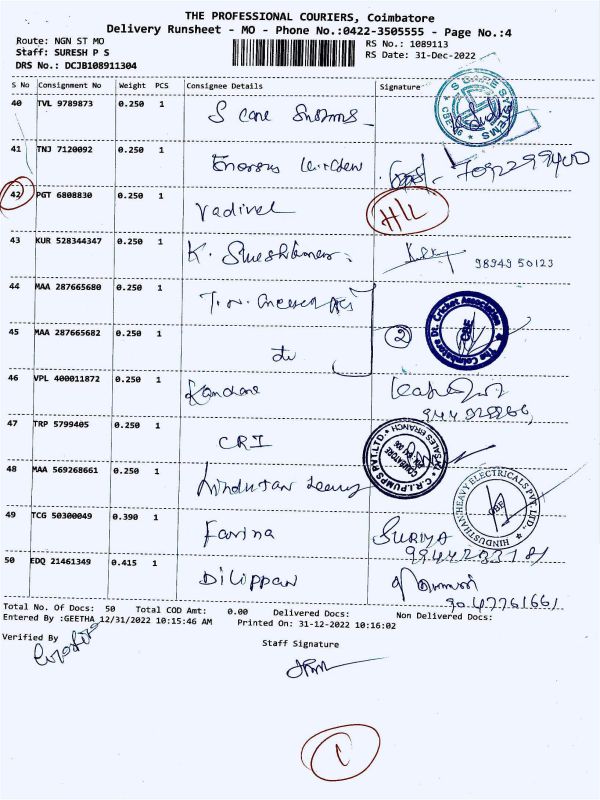 THE PROFESSIONAL COURIERS, Coimbatore
Delivery Runsheet - MO - Phone No.:0422-3505555 - Page No.:4
Route: NGN ST MO
RS No.: 1089113
Staff: SURESH P S
RS Date: 31-Dec-2022
DRS No.: DCJB108911304
S No Consignment No Weight PCS Consignee Details Signature
40 TVL 9789873 0.250 1 S Care Systems
S CARE SYSTEMS
41 TNJ 7120092 0.250 1 7092299400
42 PGT 6808830 0.250 1 Vadivel H/L
43 KUR 528344347 0.250 1 K. Sureshkumar 98949 50123
44 MAA 287665680 0.250 1
The Coimbatore Dt. Cricket Association CBE
45 MAA 287665682 0.250 1 do 2
46 VPL 400011872 0.250 1
47 TRP 5799405 0.250 1 CRI
C.R.I. PUMPS PVT.LTD. SALES BRANCH
48 MAA 569268661 0.250 1 Hindustan Heavy
HINDUSTHAN HEAVY ELECTRICALS PVT. LTD., CBE
49 TCG 50300049 0.390 1 Farina SURIYA
50 EDQ 21461349 0.415 1 Dilippan
90 47761661
Total No. Of Docs: 50 Total COD Amt: 0.00 Delivered Docs: Non Delivered Docs:
Entered By :GEETHA 12/31/2022 10:15:46 AM Printed On: 31-12-2022 10:16:02
Verified By Staff Signature
1